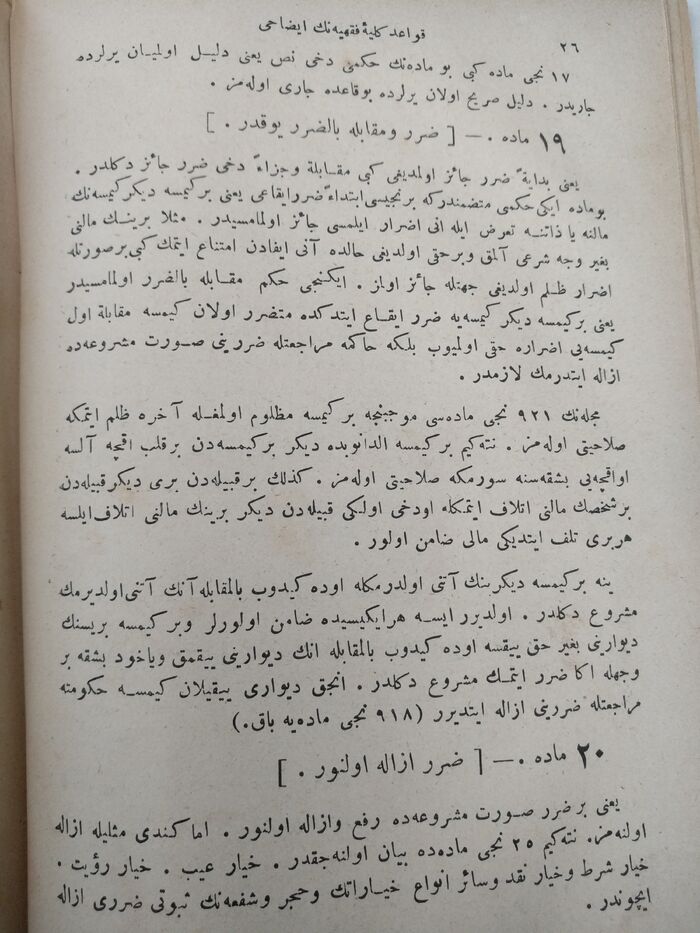 ٢٦
قواعد كليهٔ فقهيه‌نك ايضاحى
١٧ نجى ماده كبى بو ماده‌نك حكمى دخى نص يعنى دليل اولميان يرلرده
جاريدر . دليل صريح اولان يرلرده بوقاعده جارى اوله‌مز .
١٩ ماده . — [ ضرر ومقابله بالضرر يوقدر . ]
يعنى بدايةً ضرر جائز اولمديغى كبى مقابلة وجزاءً دخى ضرر جائز دكلدر .
بوماده ايكى حكمى متضمندركه برنجيسى ابتداءً ضرر ايقاعى يعنى بركيمسه ديكر كيمسه‌نك
مالنه يا ذاتنه تعرض ايله انى اضرار ايلمسى جائز اولمامسيدر . مثلا برينك مالنى
بغير وجه شرعى آلمق وبرحق اولديغى حالده آنى ايفادن امتناع ايتمك كبى برصورتله
اضرار ظلم اولديغى جهتله جائز اولمز . ايكنجى حكم مقابله بالضرر اولمامسيدر
يعنى بركيمسه ديكر كيمسه‌يه ضرر ايقاع ايتدكده متضرر اولان كيمسه مقابلة اول
كيمسه‌يى اضراره حق اولميوب بلكه حاكمه مراجعتله ضررينى صورت مشروعه‌ده
ازاله ايتدرمك لازمدر .
مجله‌نك ٩٢١ نجى ماده‌سى موجبنجه بركيمسه مظلوم اولمغله آخره ظلم ايتمكه
صلاحيتى اوله‌مز . نته‌كيم بركيمسه الدانوبده ديكر بركيمسه‌دن برقلب اقچه آلسه
اواقچه‌يى بشقه‌سنه سورمكه صلاحيتى اوله‌مز . كذلك برقبيله‌دن برى ديكر قبيله‌دن
برشخصك مالنى اتلاف ايتمكله اودخى اولكى قبيله‌دن ديكر برينك مالنى اتلاف ايلسه
هربرى تلف ايتديكى مالى ضامن اولور .
ينه بركيمسه ديكرينك آتنى اولدرمكله اوده كيدوب بالمقابله آنك آتنى اولديرمك
مشروع دكلدر . اولديرر ايسه هرايكيسيده ضامن اولورلر وبركيمسه بريسنك
ديوارينى بغير حق ييقسه اوده كيدوب بالمقابله انك ديوارينى ييقمق وياخود بشقه بر
وجهله اكا ضرر ايتمك مشروع دكلدر . انجق ديوارى ييقيلان كيمسه حكومته
مراجعتله ضررينى ازاله ايتديرر (٩١٨ نجى ماده‌يه باق.)
٢٠ ماده . — [ ضرر ازاله اولنور . ]
يعنى برضرر صورت مشروعه‌ده رفع وازاله اولنور . اما كندى مثليله ازاله
اولنه‌مز. نته‌كيم ٢٥ نجى ماده‌ده بيان اولنه‌جقدر . خيار عيب . خيار رؤيت .
خيار شرط وخيار نقد وسائر انواع خياراتك وحجر وشفعه‌نك ثبوتى ضررى ازاله
ايچوندر .